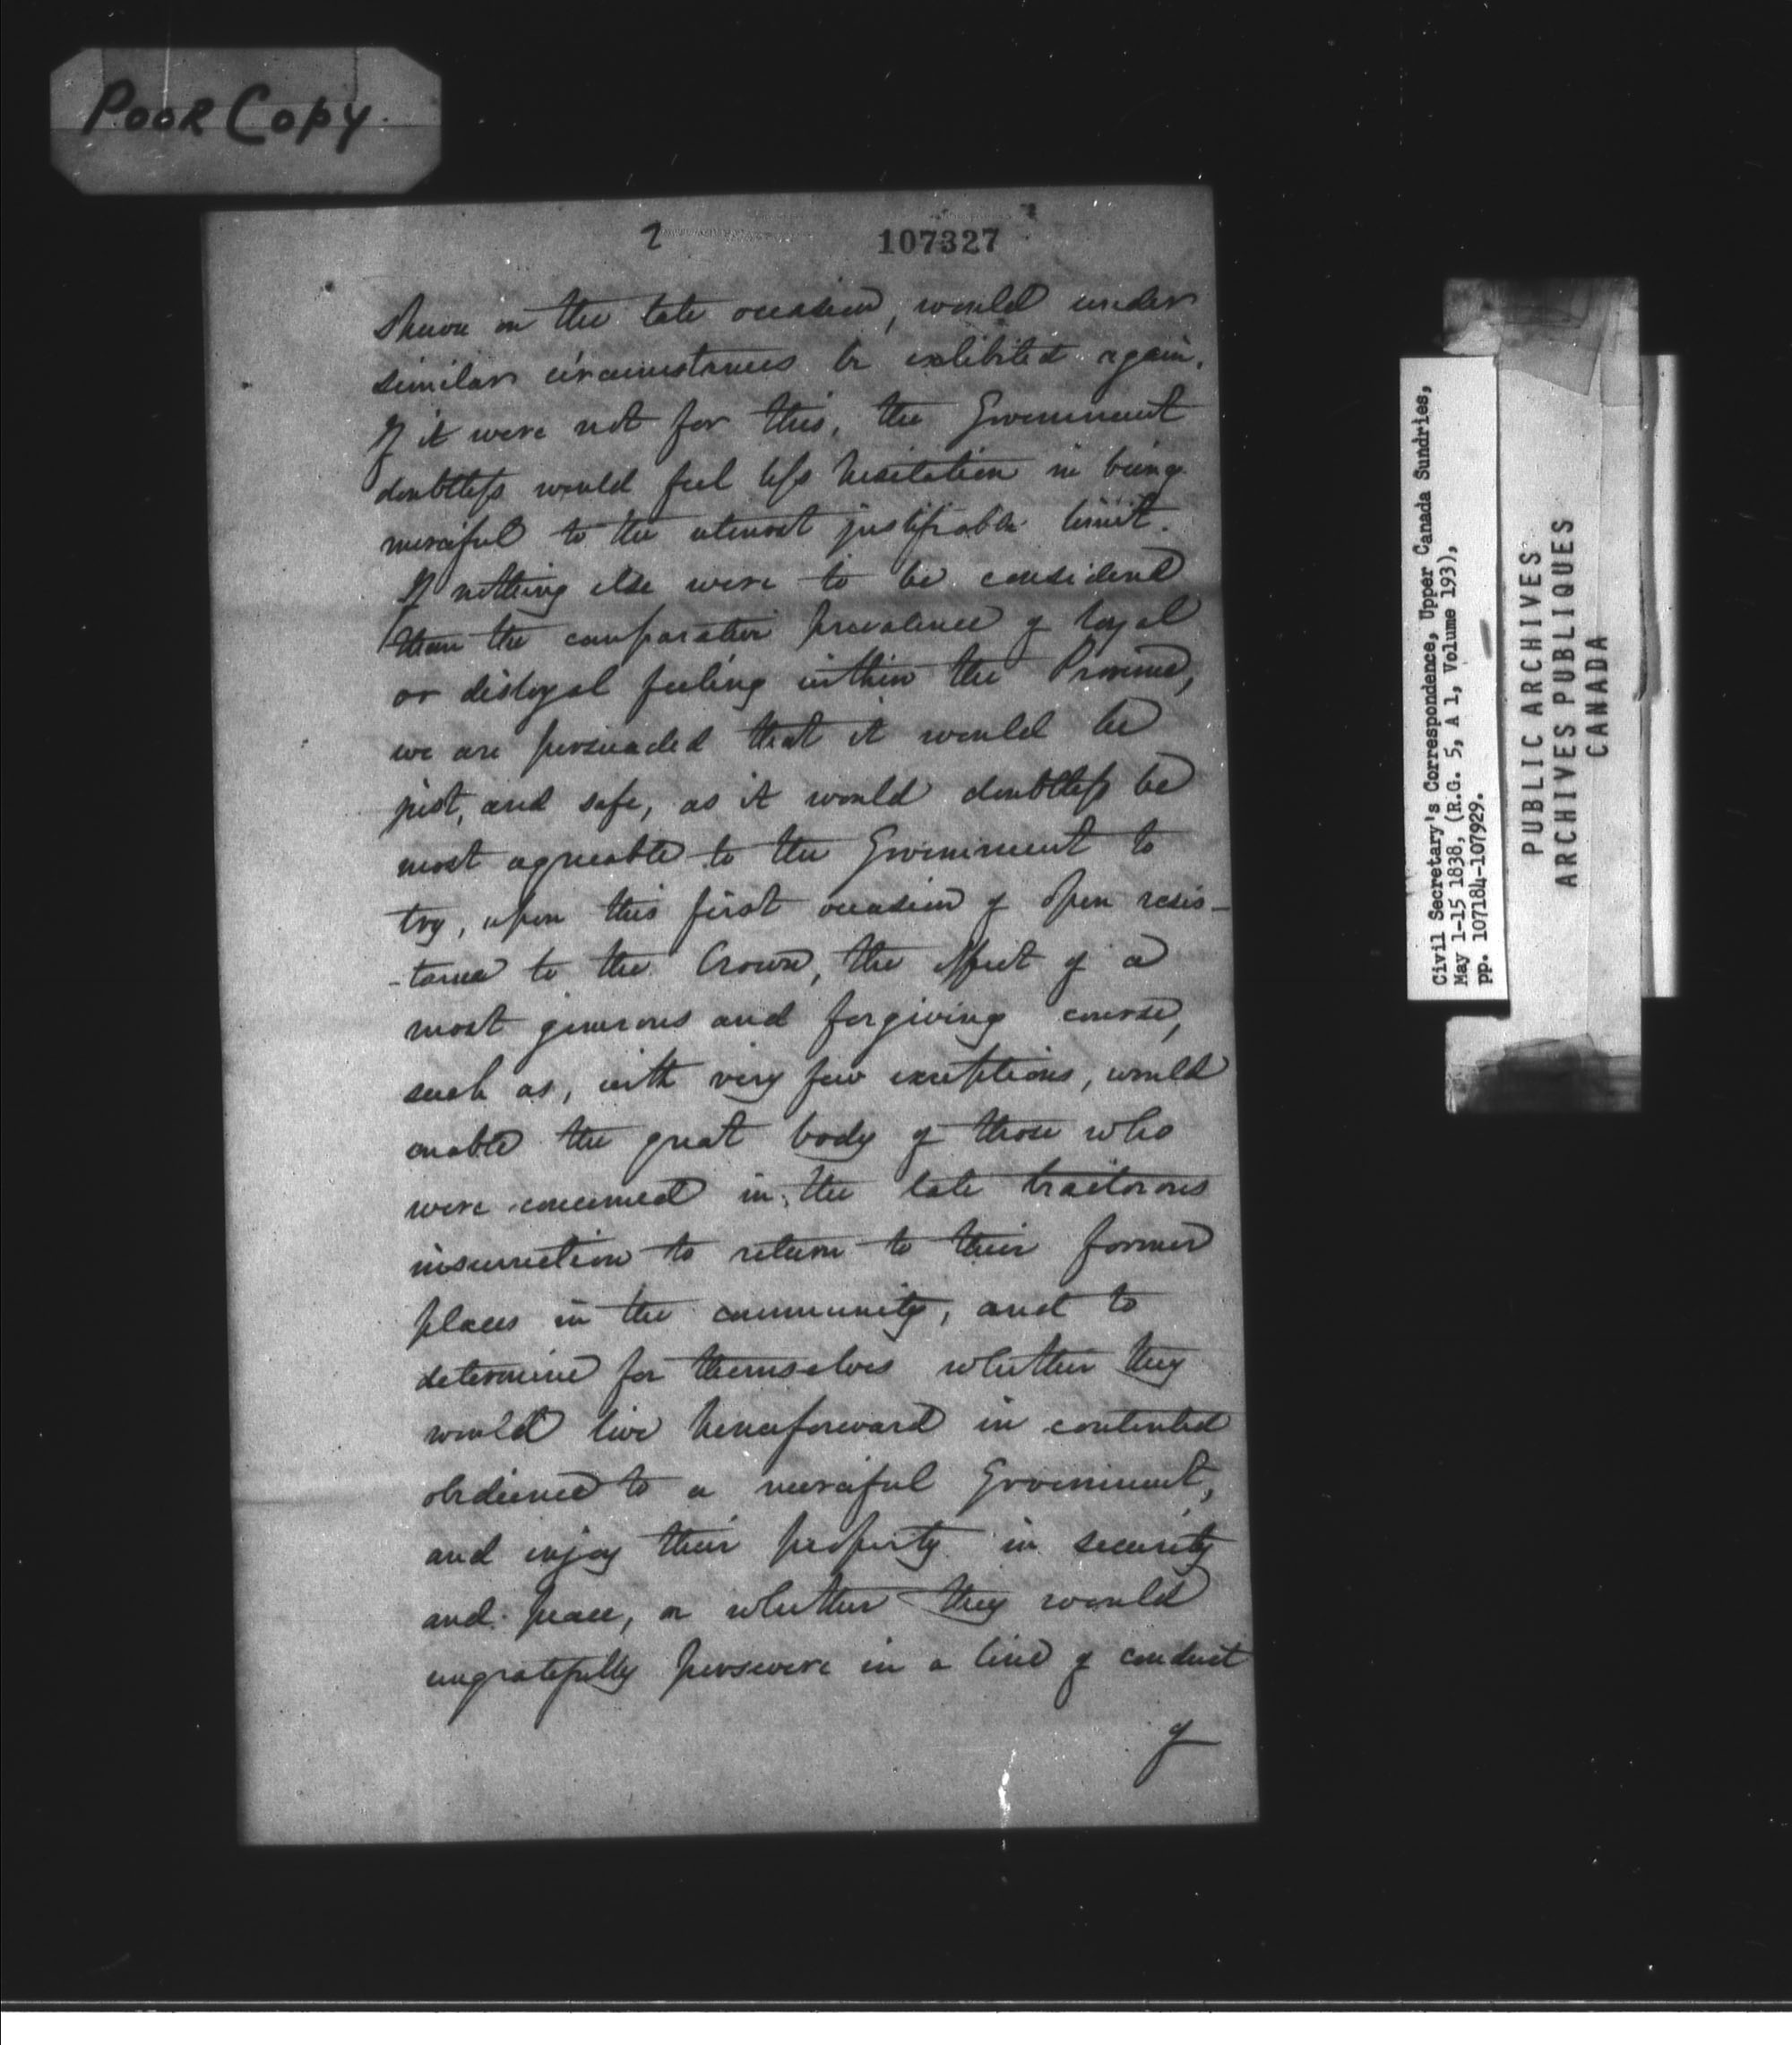 Poor Copy.
2
107327
shewn on the late occasion, would under
similar circumstances be exhibited again.
If it were not for this, the Government
doubtless would feel less hesitation in being
merciful to the utmost justifiable limit.
If nothing else were to be considered
than the comparative prevalence of loyal
or disloyal feeling within the Province,
we are persuaded that it would be
just, and safe, as it would doubtless be
most agreeable to the Government to
try, upon this first occasion of open resis-
-tance to the Crown, the effect of a
most generous and forgiving course,
such as, with very few exceptions, would
enable the great body of those who
were concerned in the late traitorous
insurrection to return to their former
places in the community, and to
determine for themselves whether they
would live henceforward in contented
obedience to a merciful Government,
and enjoy their property in security
and peace, or whether they would
ungratefully persevere in a line of conduct
of
Civil Secretary's Correspondence, Upper Canada Sundries,
May 1-15 1838, (R.G. 5, A 1, Volume 193),
pp. 107184-107929.
PUBLIC ARCHIVES
ARCHIVES PUBLIQUES
CANADA